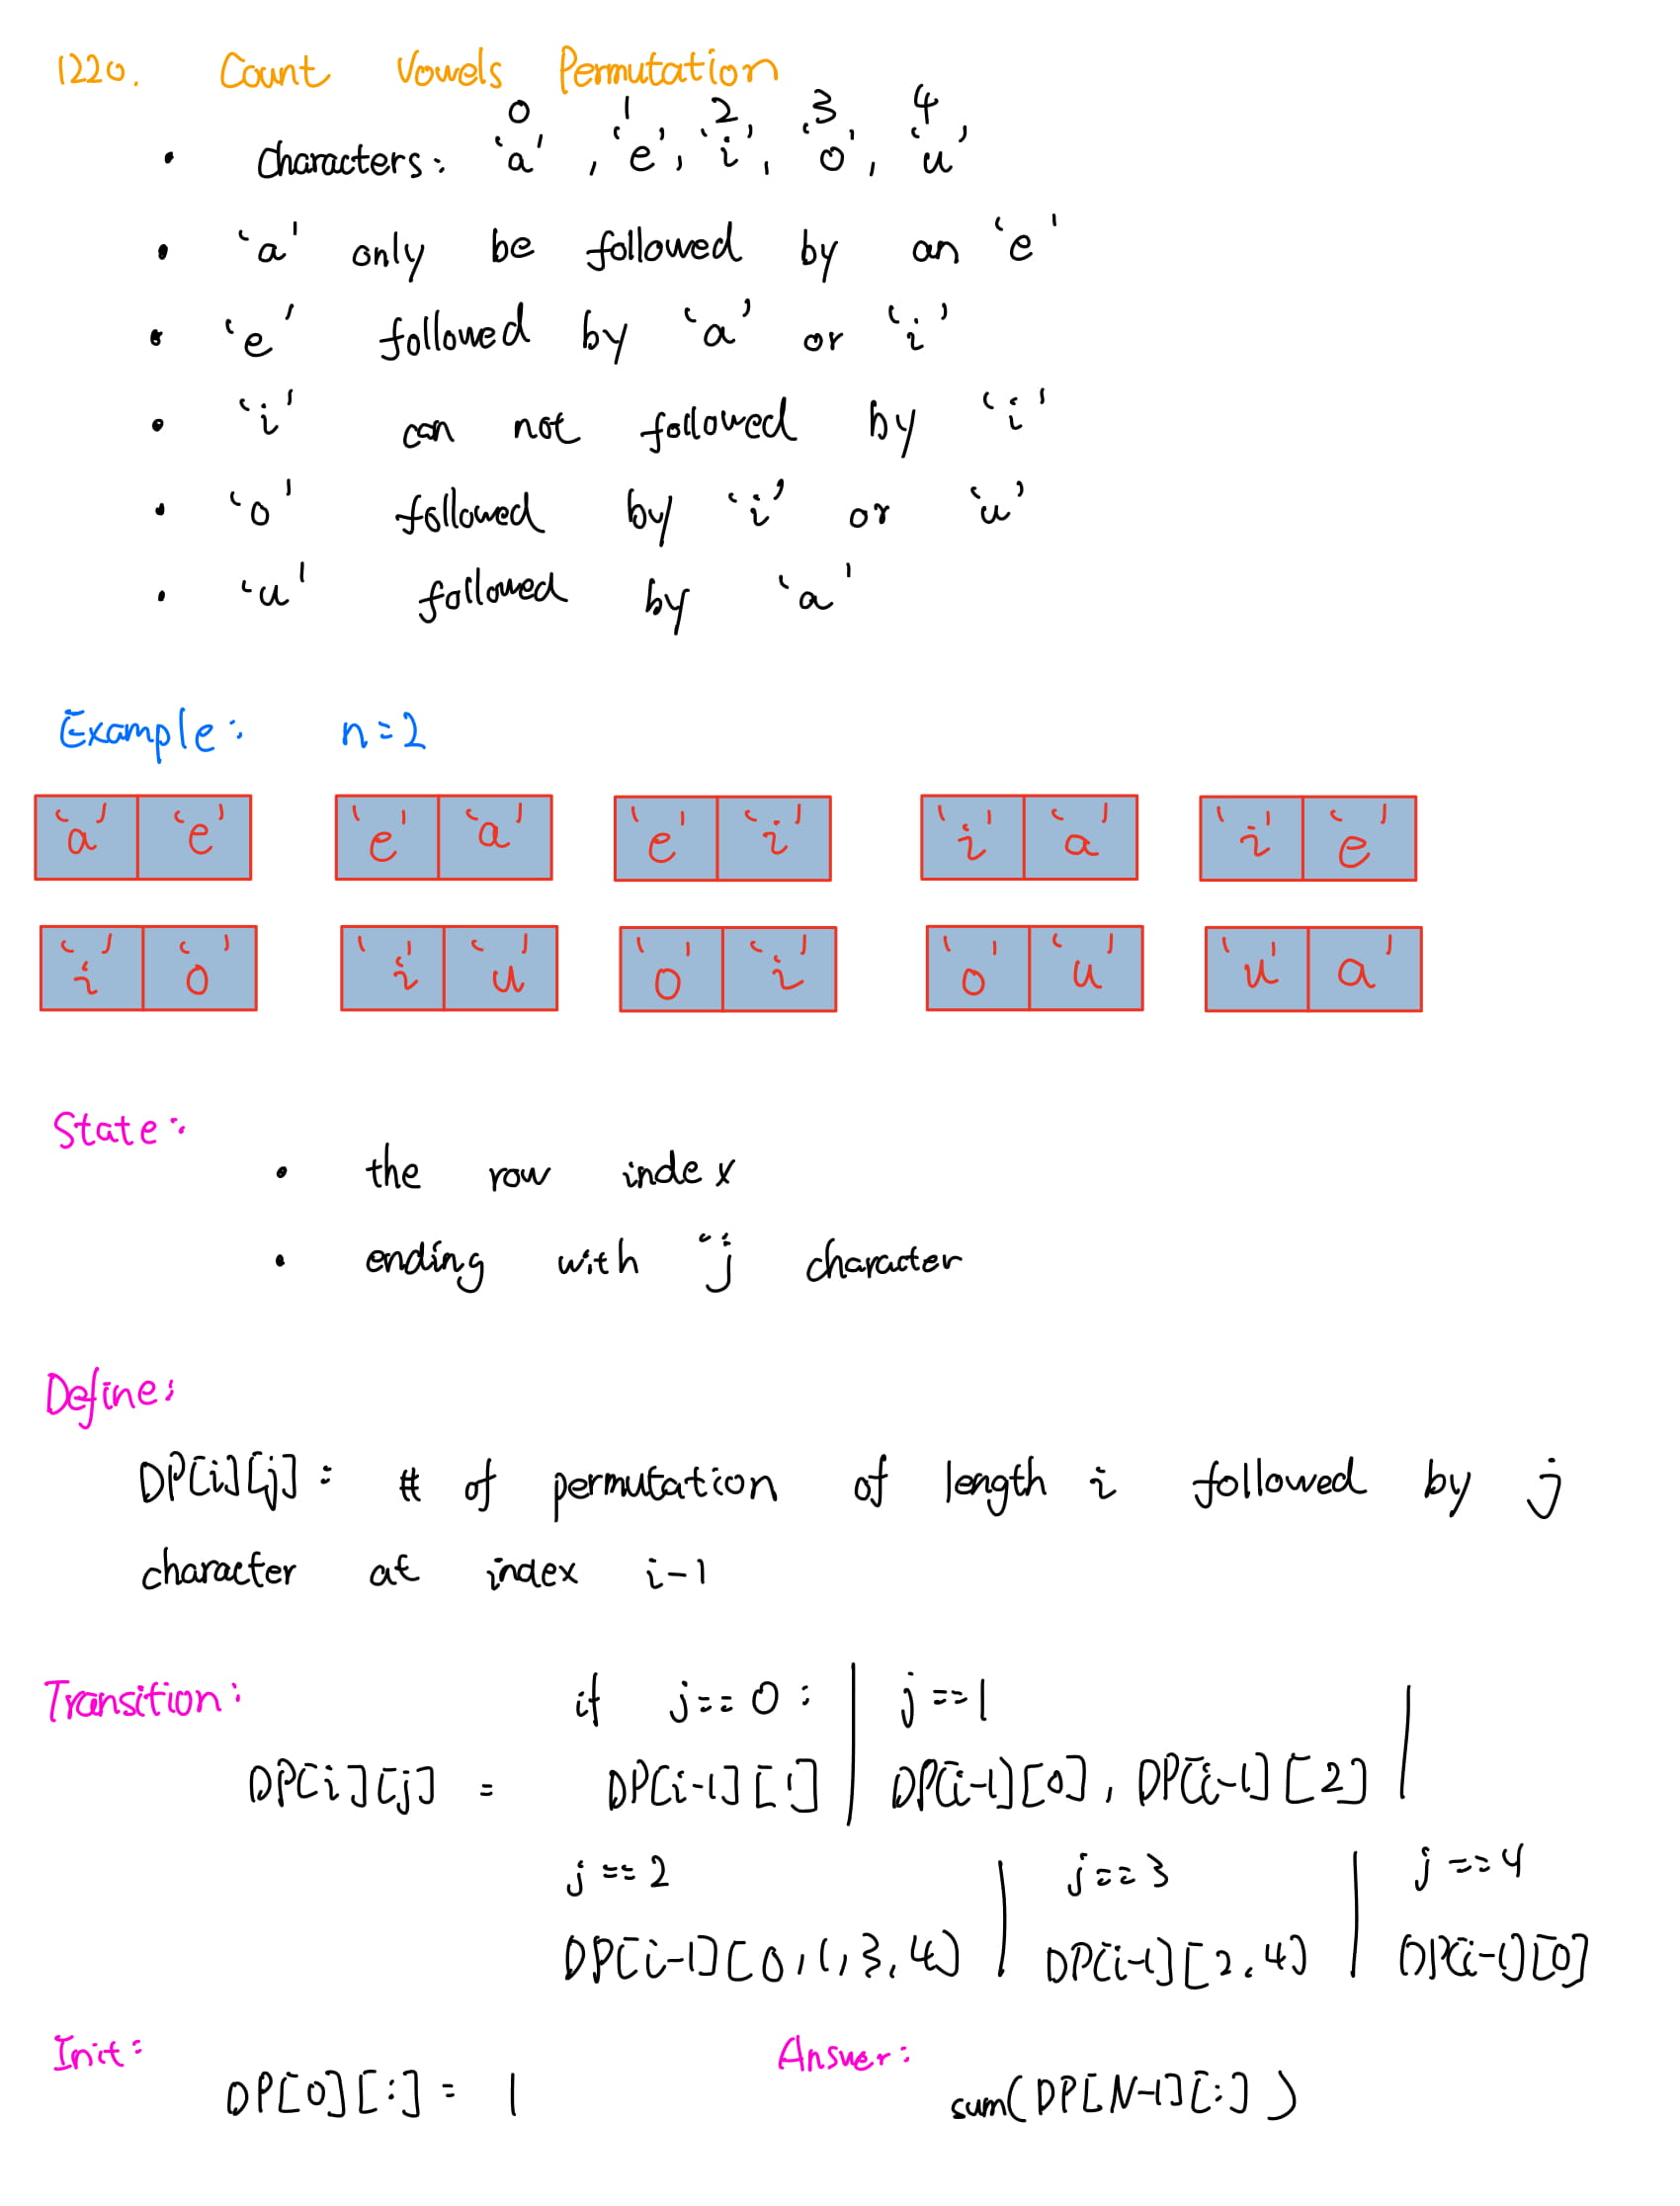 1220. Count Vowels Permutation
0 1 2 3 4
• characters: 'a', 'e', 'i', 'o', 'u'
• 'a' only be followed by an 'e'
• 'e' followed by 'a' or 'i'
• 'i' can not followed by 'i'
• 'o' followed by 'i' or 'u'
• 'u' followed by 'a'
Example: n=2
'a' 'e' 'e' 'a' 'e' 'i' 'i' 'a' 'i' 'e'
'i' 'o' 'i' 'u' 'o' 'i' 'o' 'u' 'u' a'
State:
• the row index
• ending with "j character
Define:
DP[i][j]: # of permutation of length i followed by j
character at index i-1
Transition: if j==0: | j==1 |
DP[i][j] = DP[i-1][1] | DP[i-1][0], DP[i-1][2] |
j==2 | j==3 | j==4
DP[i-1][0,1,3,4] | DP[i-1][2,4] | DP[i-1][0]
Init: Answer:
DP[0][:] = 1 sum(DP[N-1][:])